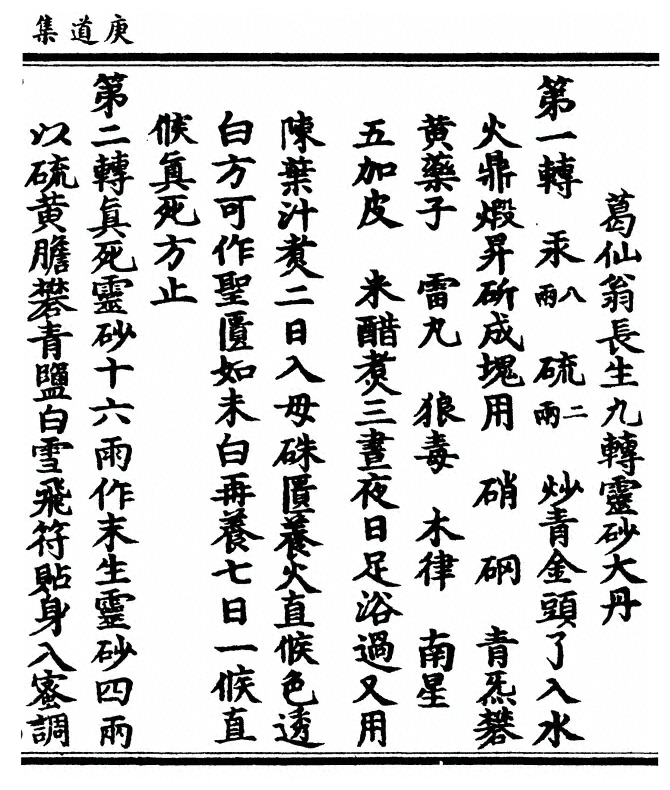 庚道集
葛仙翁長生九轉靈砂大丹
第一轉 汞八兩 硫二兩 炒青金頭了入水
火鼎煅昇斫成塊用 硝 硇 青炁礬
黃藥子 雷丸 狼毒 木律 南星
五加皮 米醋煮三晝夜日足浴過又用
陳葉汁煮二日入母硃匱養火直候色透
白方可作聖匱如未白再養七日一候直
候眞死方止
第二轉眞死靈砂十六兩作末生靈砂四兩
以硫黃膽礬青鹽白雪飛符貼身入蜜調